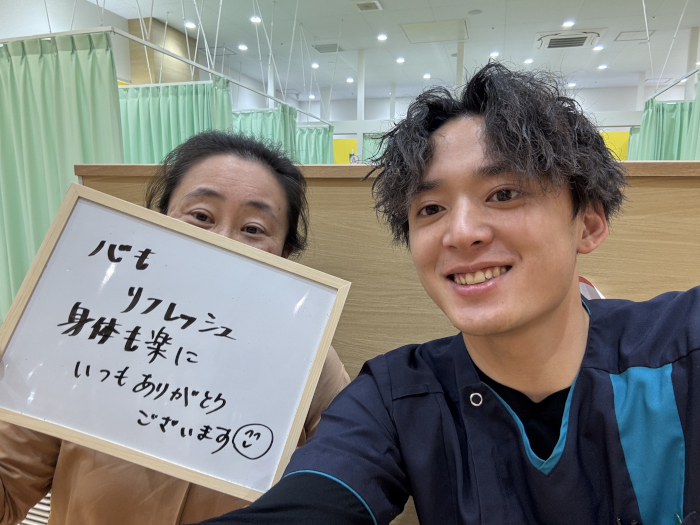 心も
リフレッシュ
身体も楽に
いつもありがとう
ございます